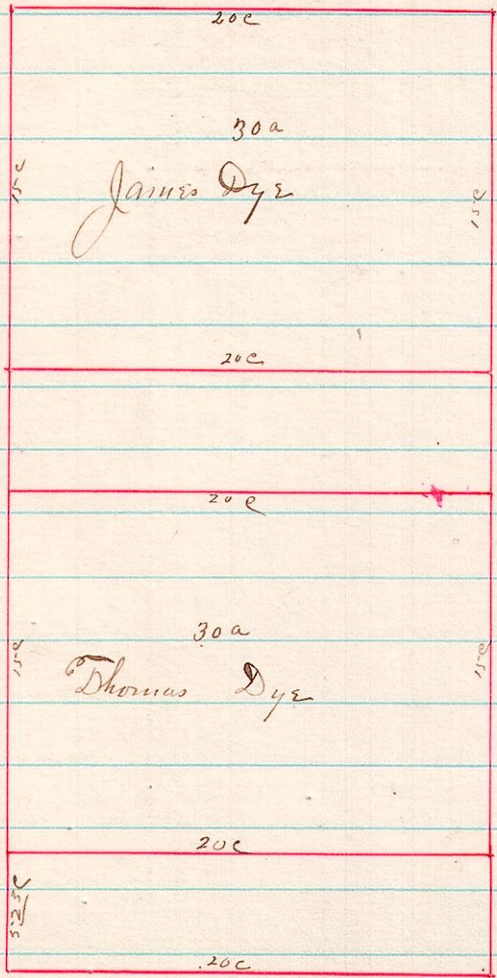 20c
30a
15c
James Dye
15c
20c
20c
30a
15c
Thomas Dye
15c
20c
5.25c
20c